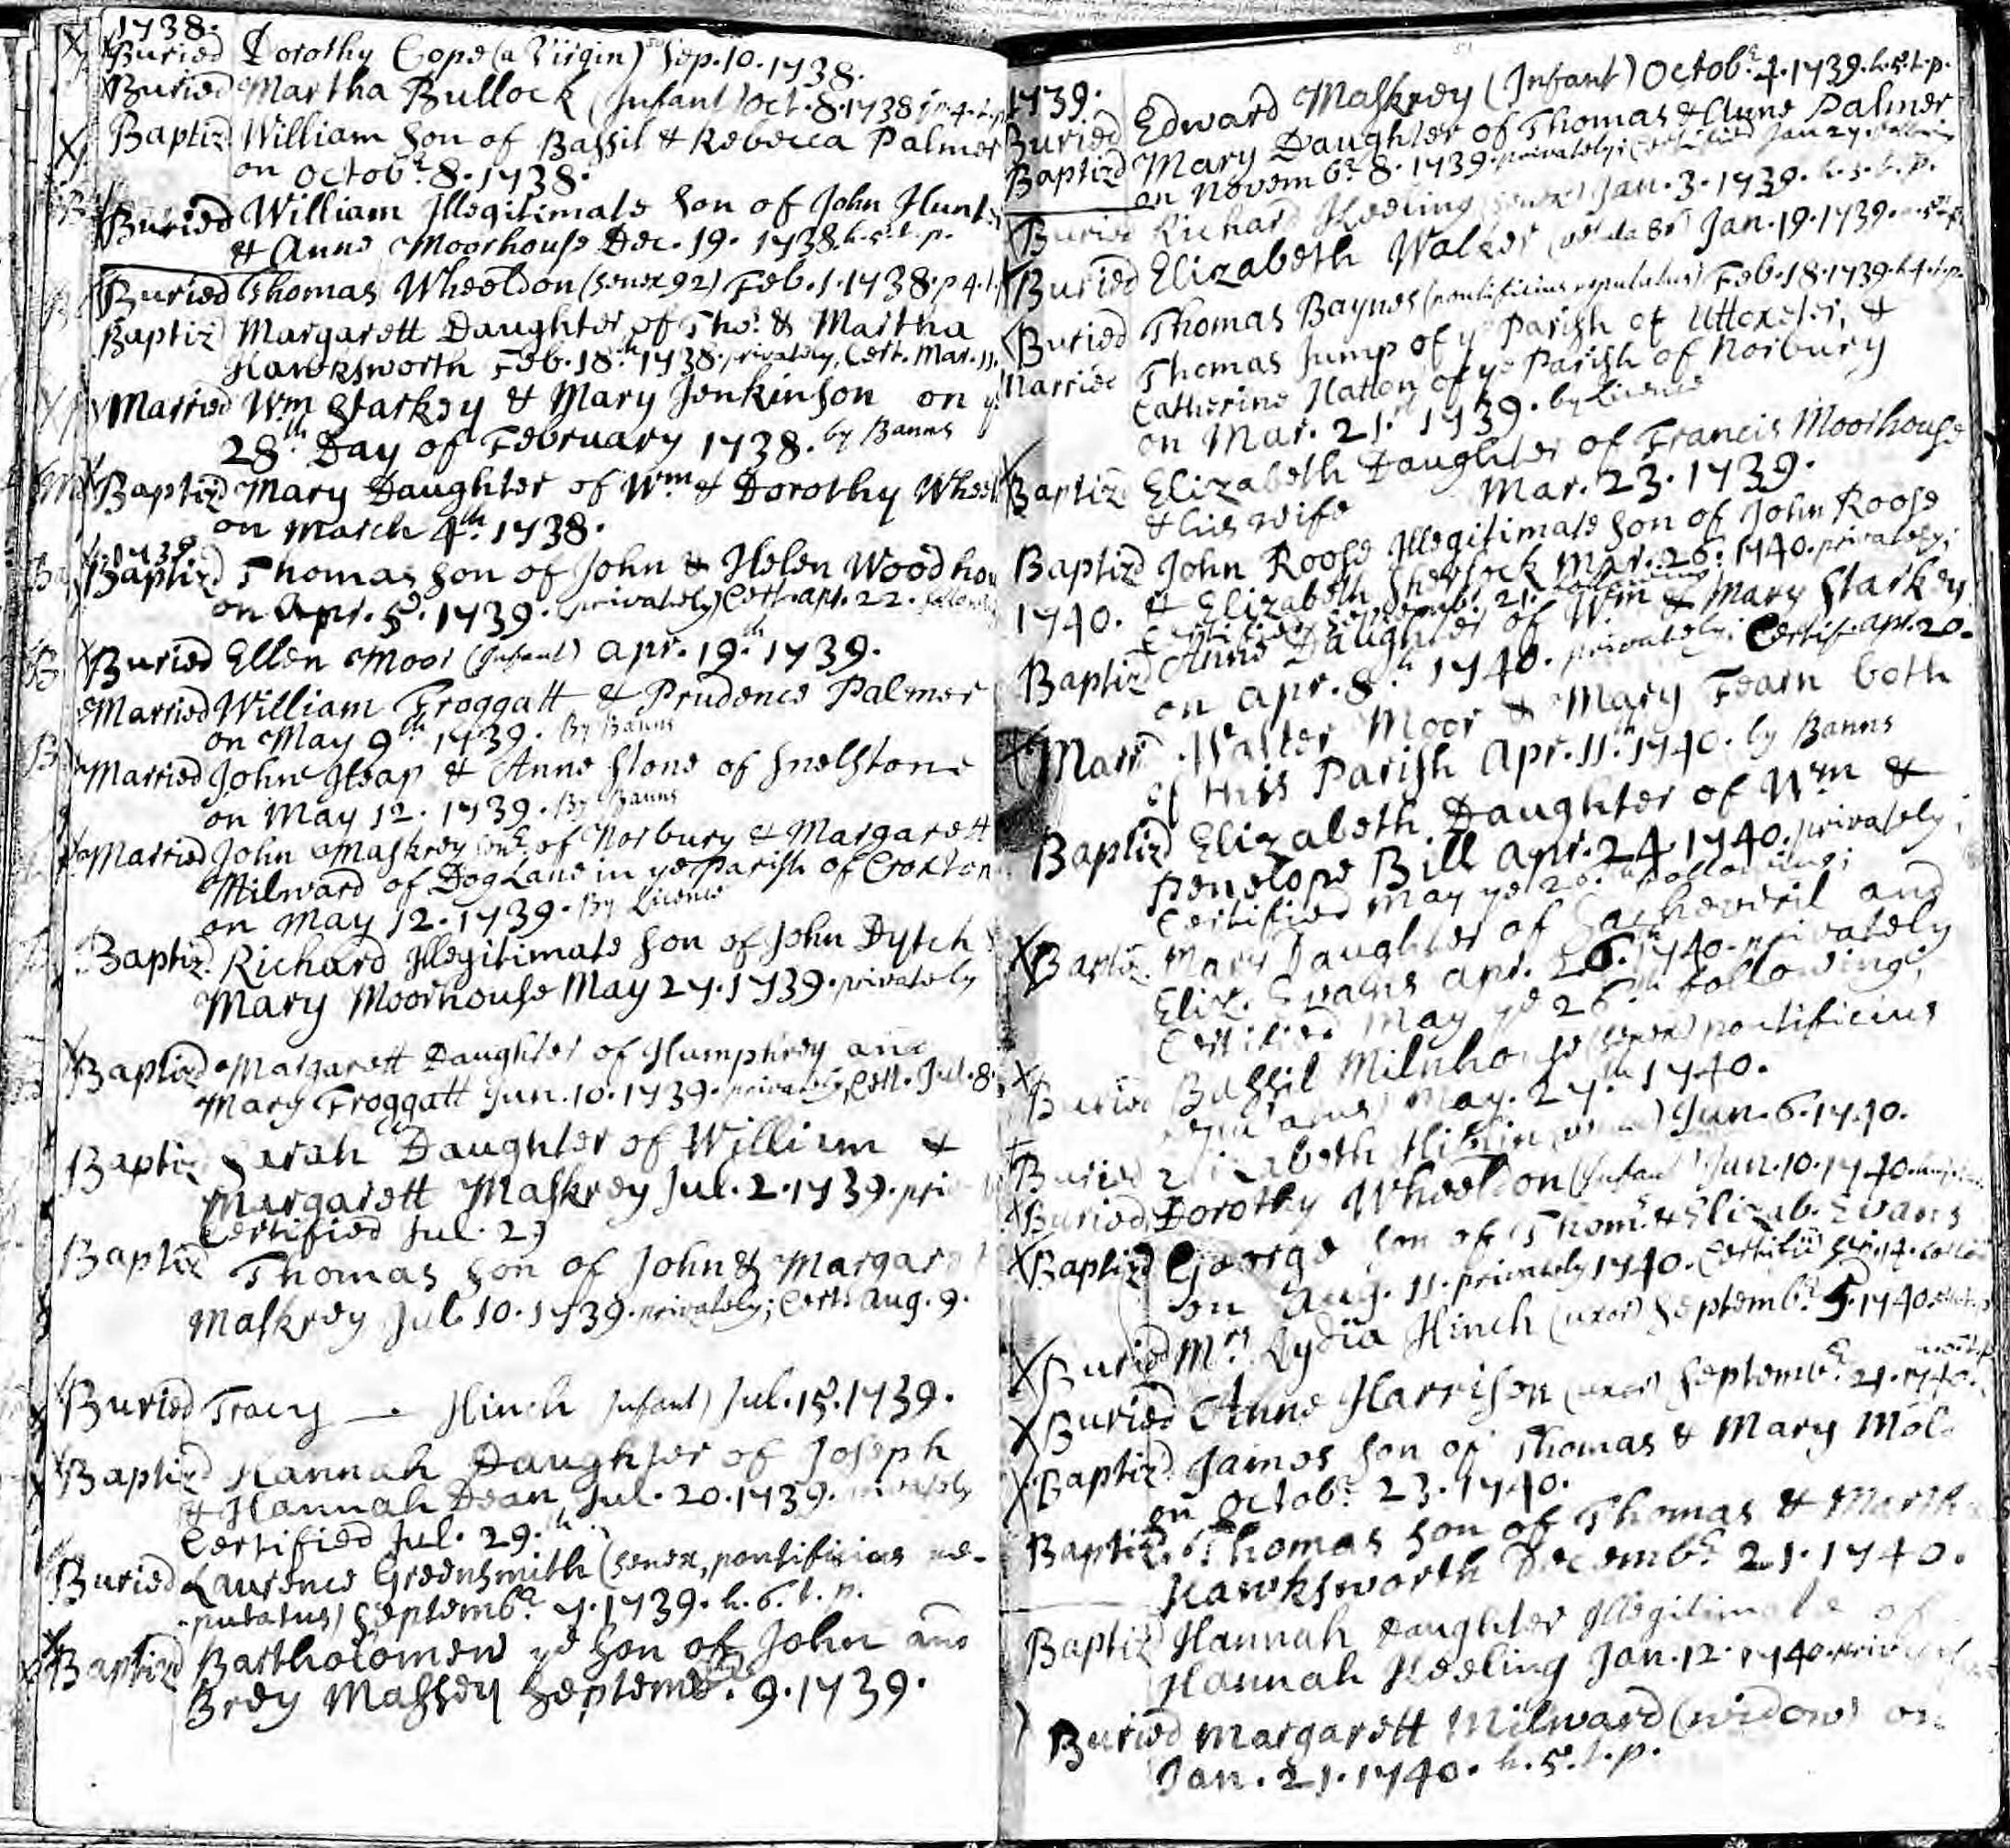 1738.
Buried Dorothy Cope (a Virgin) Sep. 10. 1738.
Buried Martha Bullock (Infant) Oct. 8. 1738 h. 4. t. p.
Baptiz'd William Son of Bassil & Rebecca Palmer
on Octobr. 8. 1738.
Buried William Illegitimate Son of John Hunt
& Anne Moorhouse Dec. 19. 1738. h. 5. t. p.
Buried Thomas Wheeldon (Senex 92) Feb. 1. 1738. p. 4. t.
Baptiz'd Margarett Daughter of Tho: & Martha
Hawksworth Feb. 18th 1738. privately, Cert. Mar. 11.
Married Wm Starkey & Mary Jenkinson on ye
28th Day of February 1738. by Banns
Baptiz'd Mary Daughter of Wm & Dorothy Wheel
on March 4th 1738.
1739
Baptiz'd Thomas Son of John & Helen Woodhou
on Apr. 5. 1739. privately, Cert. Apr. 22.
Buried Ellen Moor (Infant) Apr. 19th 1739.
Married William Froggatt & Prudence Palmer
on May 9th 1739. By Banns
Married John Heap & Anne Stone of Snelstone
on May 12. 1739. By Banns
Married John Maskrey of Norbury & Margarett
Milward of Dog Lane in ye Parish of Croxton
on May 12. 1739. By Licence
Baptiz'd Richard Illegitimate Son of John Dytch &
Mary Moorhouse May 27. 1739. privately
Baptiz'd Margarett Daughter of Humphrey and
Mary Froggatt Jun. 10. 1739. privately, Cert. Jul. 8
Baptiz'd Sarah Daughter of William &
Margarett Maskrey Jul. 2. 1739. pri
Certified Jul. 29
Baptiz'd Thomas Son of John & Margarett
Maskrey Jul. 10. 1739. privately; Cert. Aug. 9.
Buried Tracy — Hinch Infant) Jul. 15. 1739.
Baptiz'd Hannah Daughter of Joseph
& Hannah Dean, Jul. 20. 1739. privately
Certified Jul. 29th
Buried Laurence Greensmith (Senex, pontificius re-
putatus) Septembr. 7. 1739. h. 6. t. p.
Baptiz'd Bartholomew ye Son of John and
Brey Massey Septembr. 9. 1739.
1739.
Buried Edward Maskrey (Infant) Octobr. 4. 1739. h. 5. t. p.
Baptiz'd Mary Daughter of Thomas & Anne Palmer
on Novembr. 8. 1739. privately; Certified Jan 27
Buried Richard Keeling (Senex) Jan. 3. 1739. h. 5. t. p.
Buried Elizabeth Walker Jan. 19. 1739.
Buried Thomas Baynes (pontificius reputatus) Feb. 18. 1739. h. 4. t. p.
Married Thomas Jump of ye Parish of Uttoxeter, &
Catherine Hatton of ye Parish of Norbury
on Mar. 21st 1739. by Licence
Baptiz'd Elizabeth Daughter of Francis Moorhouse
& his wife Mar. 23. 1739.
Baptiz'd John Roose Illegitimate Son of John Roose
1740. & Elizabeth Sherlock Mar. 26. 1740. privately;
Certified Septemb. 21. following
Baptiz'd Anne Daughter of Wm & Mary Starkey
on Apr. 8th 1740. privately; Certif. Apr. 20.
Marr'd Walter Moor & Mary Fearn both
of this Parish Apr. 11th 1740. by Banns
Baptiz'd Elizabeth Daughter of Wm &
Penelope Bill Apr. 24. 1740. privately;
Certified May ye 26th following;
Baptiz'd Mary Daughter of Sacheveril and
Eliz. Evans Apr. 26th 1740. privately
Certified May ye 26th following;
Buried Bassil Milnhouse (Senex) pontificius
May. 27th 1740.
Buried Elizabeth Jun. 6. 1740.
Buried Dorothy Wheeldon (Infant) Jun. 10. 1740.
Baptiz'd George Son of Thom: & Elizab. Evans
on Aug. 11. privately 1740. Certified Sep. 14.
Buried Mrs Lydia Hinch (uxor) Septembr. 5. 1740.
Buried Anne Harrison (uxor) Septembr. 21. 1740.
Baptiz'd James Son of Thomas & Mary Mol
on Octobr. 23. 1740.
Baptiz'd Thomas Son of Thomas & Martha
Hawksworth Decembr. 21. 1740.
Baptiz'd Hannah Daughter Illegitimate of
Hannah Keeling Jan. 12. 1740. privately
Buried Margarett Milward (widow) on
Jan. 21. 1740. h. 5. t. p.